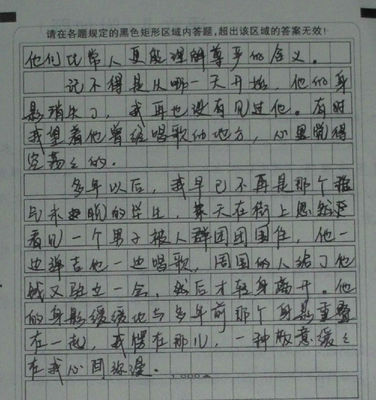 请在各题规定的黑色矩形区域内答题,超出该区域的答案无效!
他们比常人更能理解尊严的含义。
记不得是从哪一天开始,他们的身
影消失了,我再也没有见过他。有时
我望着他曾经唱歌的地方,心里觉得
空荡々的。
多年以后,我早已不再是那个
的学生,某天在街上忽然
看见一个男子被人群团团围住,他一
边弹吉他一边唱歌,周围的人给了他
钱又驻立一会,然后才转身离开。他
的身影缓缓地与多年前那个身影重叠
在一起,我愣在那儿,一种敬意缓々
在我心间弥漫。